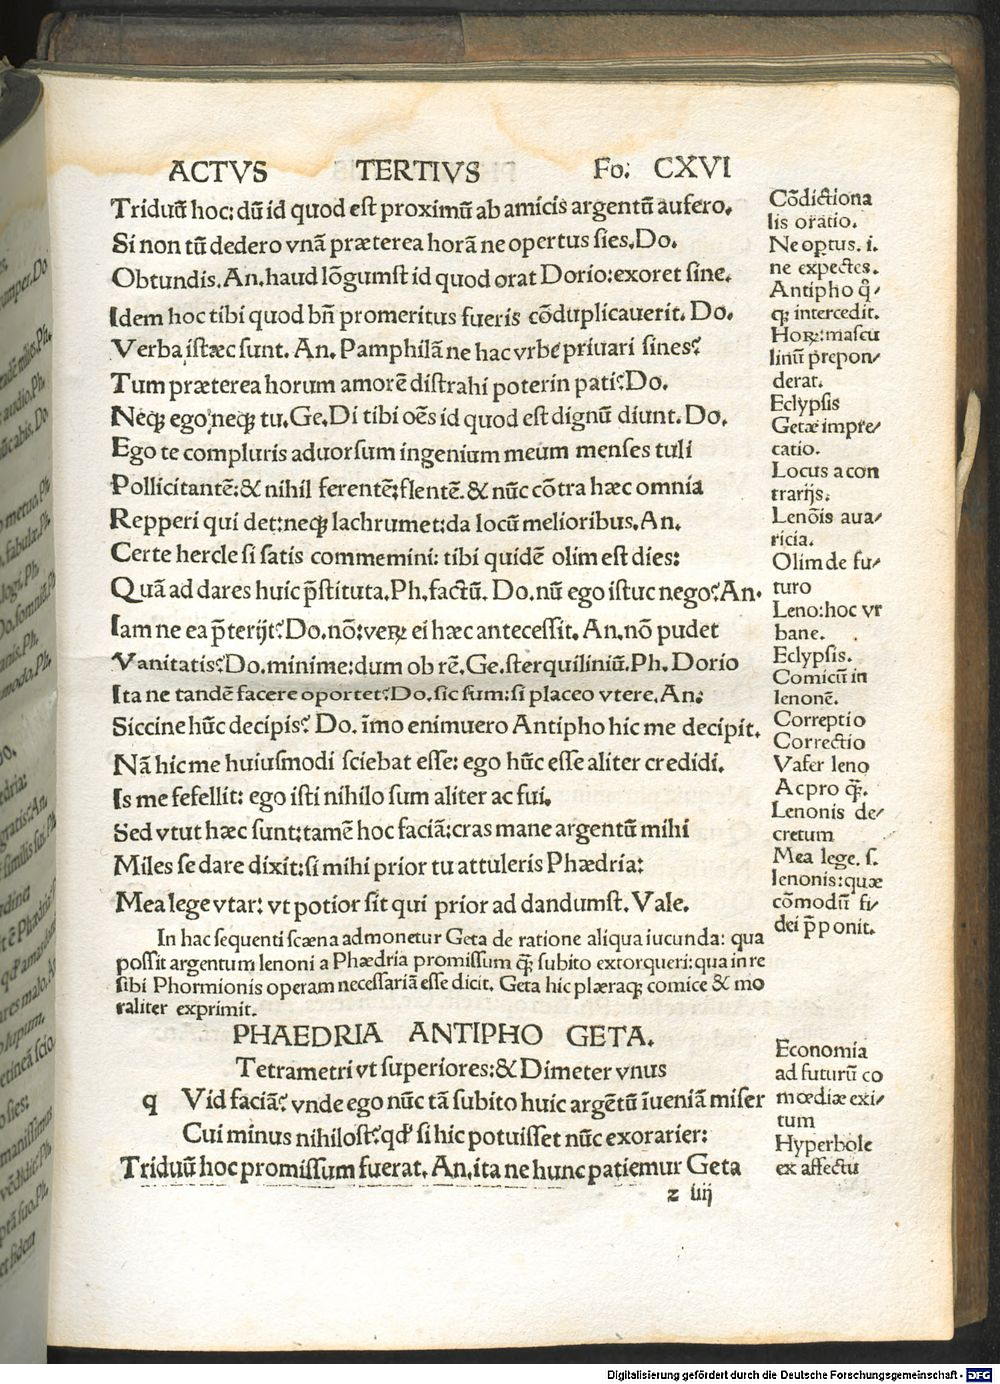 ACTVS TERTIVS Fo: CXVI
Triduũ hoc: dũ id quod est proximũ ab amicis argentũ aufero.
Si non tũ dedero vnã præterea horã ne opertus sies. Do.
Obtundis. An. haud lõgumst id quod orat Dorio: exoret sine.
Idem hoc tibi quod bñ promeritus fueris cõduplicauerit. Do.
Verba istæc sunt. An. Pamphilã ne hac vrbe priuari sines?
Tum præterea horum amorẽ distrahi poterin pati? Do.
Neqꝫ ego neqꝫ tu. Ge. Di tibi oẽs id quod est dignũ diunt. Do.
Ego te compluris aduorsum ingenium meum menses tuli
Pollicitantẽ: & nihil ferentẽ: flentẽ. & nũc cõtra hæc omnia
Repperi qui det: neqꝫ lachrumet: da locũ melioribus. An.
Certe hercle si satis commemini: tibi quidẽ olim est dies:
Quã ad dares huic p̄stituta. Ph. factũ. Do. nũ ego istuc nego? An.
Iam ne ea p̄terijt? Do. nõ: veꝝ ei hæc antecessit. An. nõ pudet
Vanitatis? Do. minime: dum ob rẽ. Ge. sterquiliniũ. Ph. Dorio
Ita ne tandẽ facere oportet? Do. sic sum: si placeo vtere. An.
Siccine hũc decipis? Do. ĩmo enimuero Antipho hic me decipit.
Nã hic me huiusmodi sciebat esse: ego hũc esse aliter credidi.
Is me fefellit: ego isti nihilo sum aliter ac fui.
Sed vtut hæc sunt: tamẽ hoc faciã: cras mane argentũ mihi
Miles se dare dixit: si mihi prior tu attuleris Phædria:
Mea lege vtar: vt potior sit qui prior ad dandumst. Vale.
In hac sequenti scæna admonetur Geta de ratione aliqua iucunda: qua
possit argentum lenoni a Phædria promissum qꝫ subito extorqueri: qua in re
sibi Phormionis operam necessariã esse dicit. Geta hic plæraqꝫ comice & mo
raliter exprimit.
PHAEDRIA ANTIPHO GETA.
Tetrametri vt superiores: & Dimeter vnus
q Vid faciã? vnde ego nũc tã subito huic argẽtũ ĩueniã miser
Cui minus nihilost? qđ si hic potuisset nũc exorarier:
Triduũ hoc promissum fuerat. An. ita ne hunc patiemur Geta
z iiij
Cõdictiona
lis oratio.
Ne optus. i.
ne expectes.
Antipho q̃/
qꝫ intercedit.
Hoꝝ: mascu
linũ prepon/
derat.
Eclypsis
Getæ impre/
catio.
Locus a con
trarijs.
Lenõis aua/
ricia.
Olim de fu/
turo
Leno: hoc vr
bane.
Eclypsis.
Comicũ in
lenonẽ.
Correptio
Correctio
Vafer leno
Ac pro qꝫ.
Lenonis de/
cretum
Mea lege. s.
lenonis: quæ
cõmodũ fi/
dei p̄ponit.
Economia
ad futurũ co
mœdiæ exi/
tum
Hyperbole
ex affectu
Digitalisierung gefördert durch die Deutsche Forschungsgemeinschaft - DFG